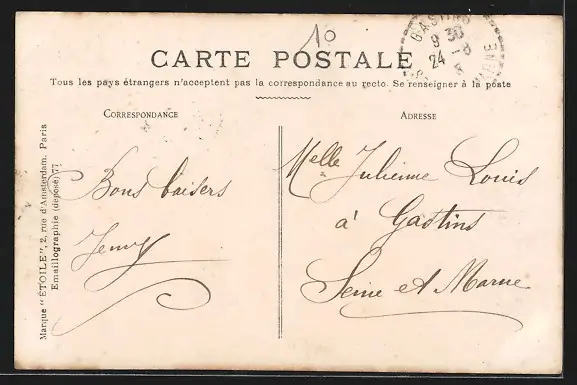 10
GASTINS
9 30
24 - 8
8
MARNE
CARTE POSTALE
Tous les pays étrangers n'acceptent pas la correspondance au recto. Se renseigner à la poste
CORRESPONDANCE
ADRESSE
Bons baisers
Jenny
Melle Julienne Louis
à Gastins
Seine et Marne
Marque "ÉTOILE", 2, rue d'Amsterdam, Paris
Emaillographie (déposé) 77